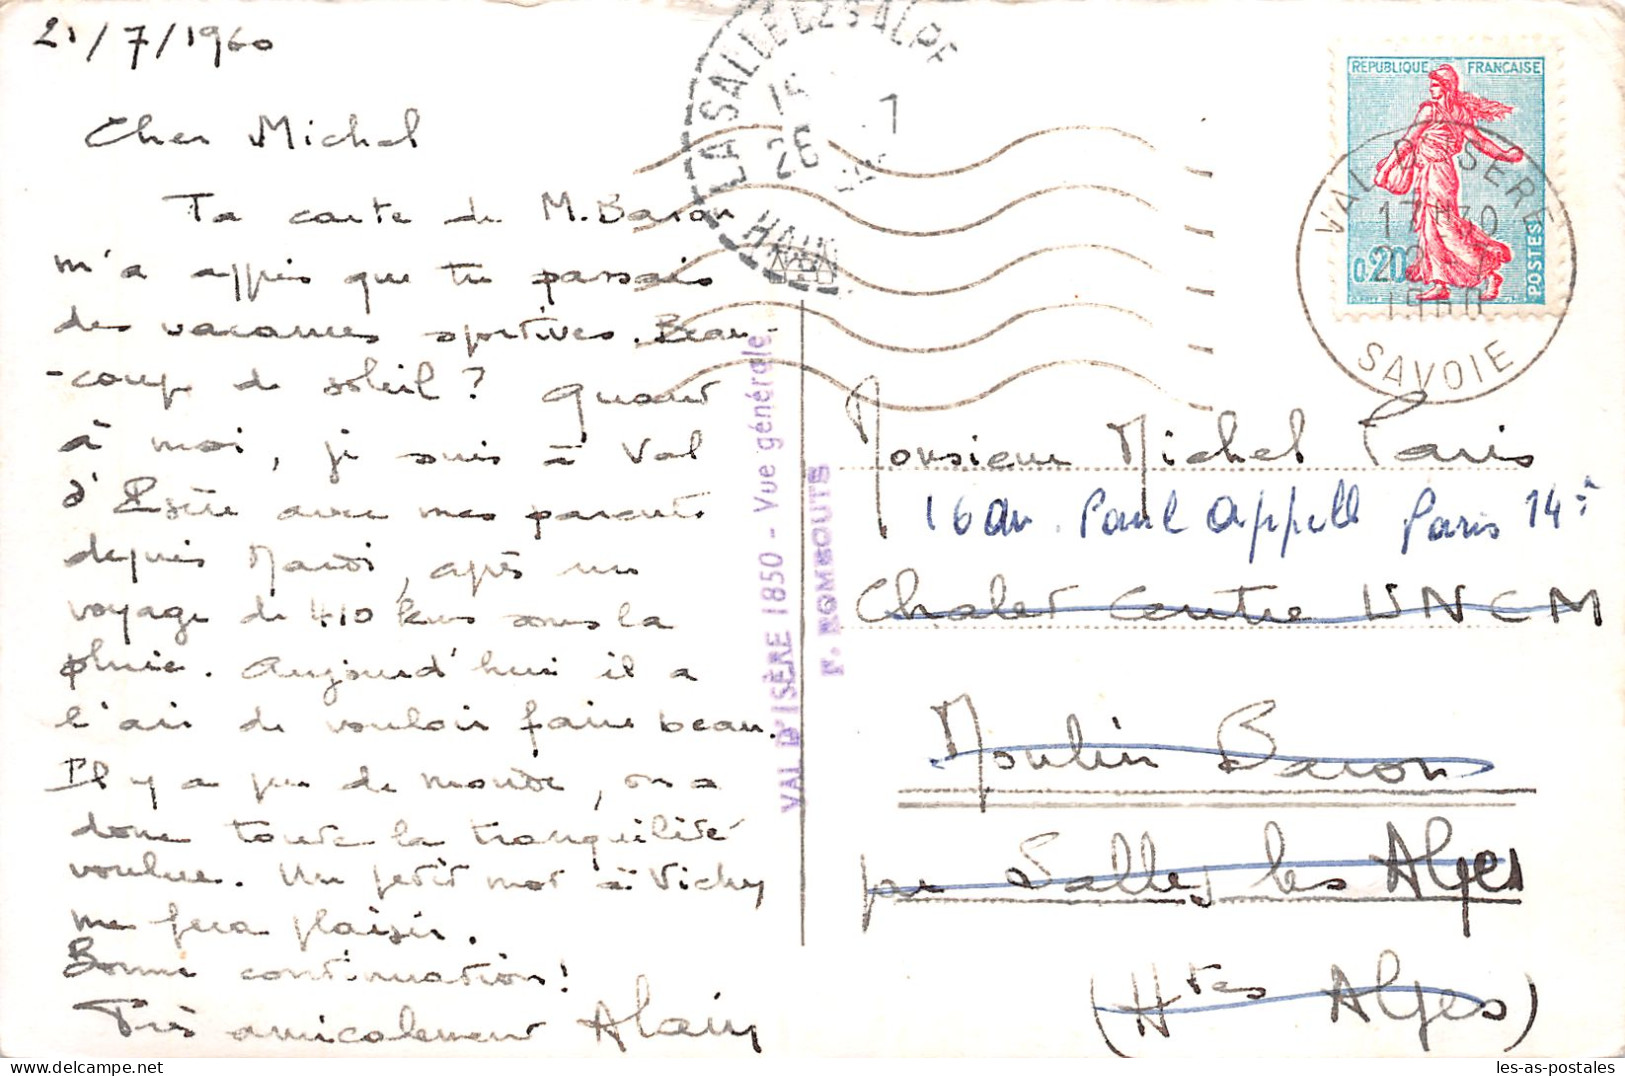 21/7/1960
Cher Michel
Ta carte de M. Baron
m'a appris que tu passais
des vacances sportives. Beau-
-coup de soleil ? Quant
à moi, je suis à Val
d'Isère avec mes parents
depuis Mardi, après un
voyage de 410 kms sous la
pluie. Aujourd'hui il a
l'air de vouloir faire beau.
Il y a peu de monde, on a
donc toute la tranquilité
voulue. Un petit mot à Vichy
me fera plaisir.
Bonne continuation !
Très amicalement Alain
LA SALLE LES ALPE
26
7
VAL D'ISÈRE 1850 - Vue générale
F. ROMBOUTS
REPUBLIQUE FRANÇAISE
0,20
POSTES
VAL D'ISERE
17H30
1960
SAVOIE
Monsieur Michel Paris
16 av. Paul Appell Paris 14è
Chalet Centre UNCM
Moulin Baron
par Salles les Alpes
(Htes Alpes)
les-as-postales